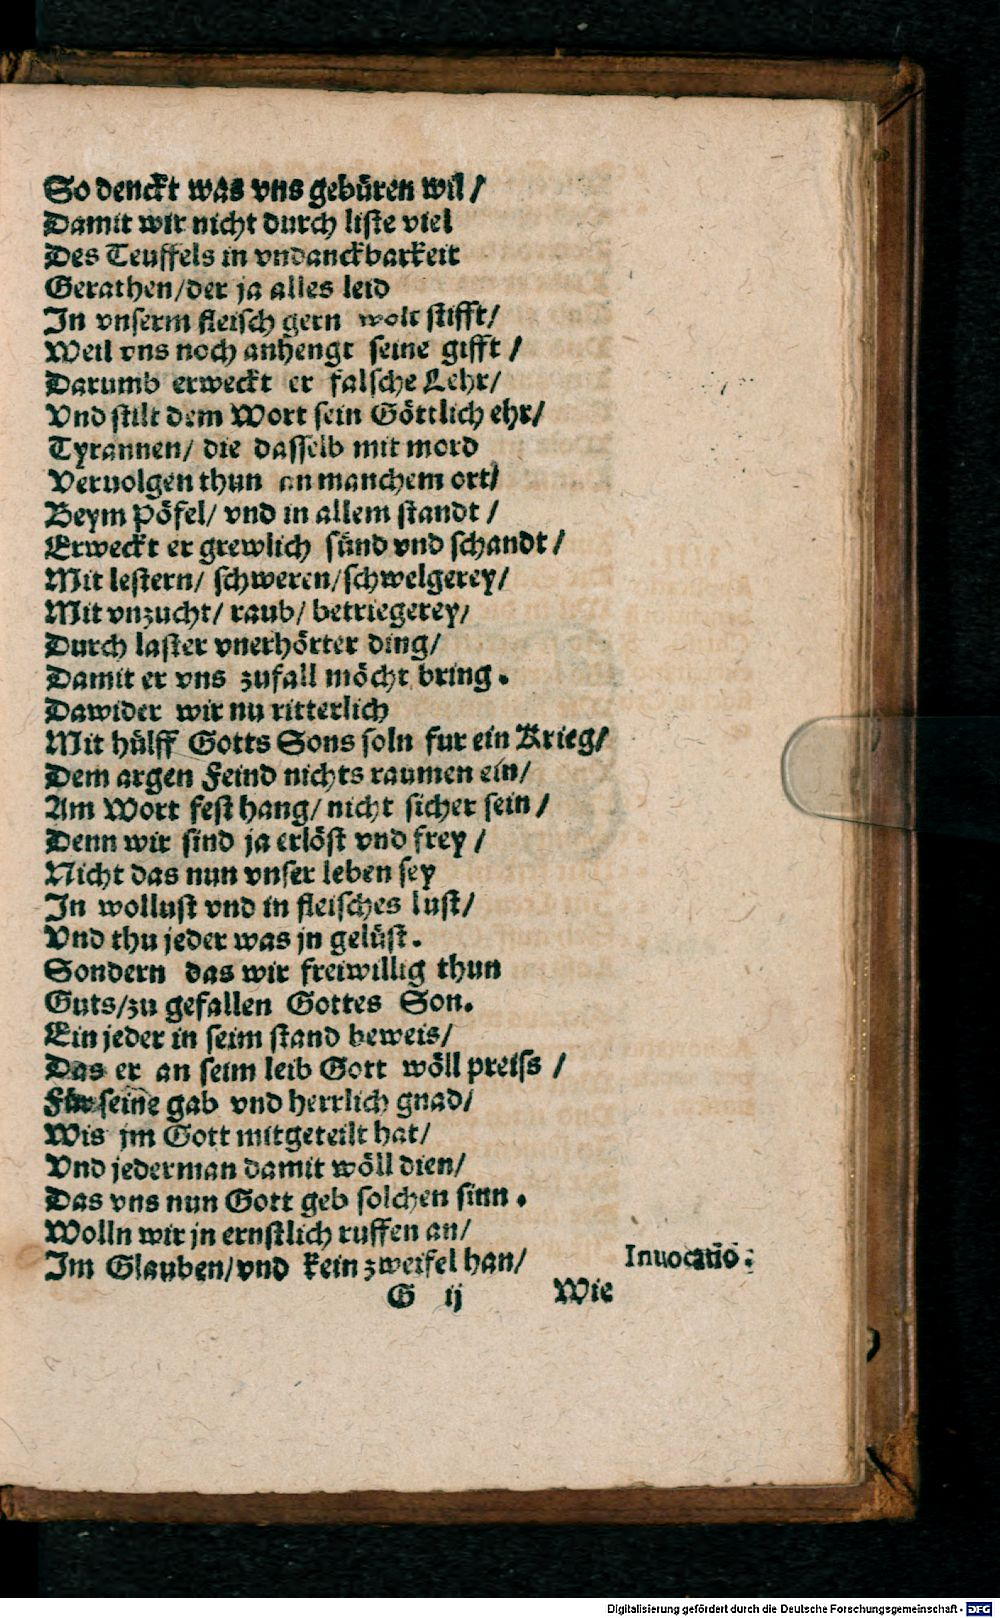 So denckt was vns gebüren wil/
Damit wir nicht durch liste viel
Des Teuffels in vndanckbarkeit
Gerathen/der ja alles leid
In vnserm fleisch gern wolt stifft/
Weil vns noch anhengt seine gifft/
Darumb erweckt er falsche Lehr/
Vnd stilt dem Wort sein Göttlich ehr/
Tyrannen/ die dasselb mit mord
Veruolgen thun an manchem ort/
Beym Pöfel/ vnd in allem standt/
Erweckt er grewlich sünd vnd schandt/
Mit lestern/ schweren/schwelgerey/
Mit vnzucht/ raub/ betriegerey/
Durch laster vnerhörter ding/
Damit er vns zufall möcht bring.
Dawider wir nu ritterlich
Mit hülff Gotts Sons soln fur ein Krieg/
Dem argen Feind nichts raumen ein/
Am Wort fest hang/ nicht sicher sein/
Denn wir sind ja erlöst vnd frey/
Nicht das nun vnser leben sey
In wollust vnd in fleisches lust/
Vnd thu jeder was jn gelüst.
Sondern das wir freiwillig thun
Guts/zu gefallen Gottes Son.
Ein jeder in seim stand beweis/
Das er an seim leib Gott wöll preiss/
Für seine gab vnd herrlich gnad/
Wis jm Gott mitgeteilt hat/
Vnd jederman damit wöll dien/
Das vns nun Gott geb solchen sinn.
Wolln wir jn ernstlich ruffen an/
Im Glauben/vnd kein zweifel han/
Inuocatio.
G ij
Wie
Digitalisierung gefördert durch die Deutsche Forschungsgemeinschaft - DFG